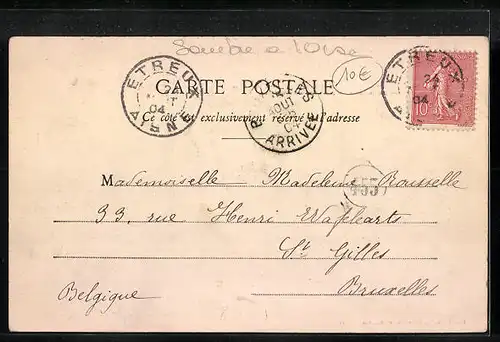 Sambre a l'Oise
10€
CARTE POSTALE
Ce côté est exclusivement réservé à l'adresse
ETREUX
04
AISNE
AOUT
04
ARRIVÉE
ETREUX
04
10
Mademoiselle Madeleine Rousselle
33, rue Henri Wafelaerts
St Gilles
Bruxelles
Belgique